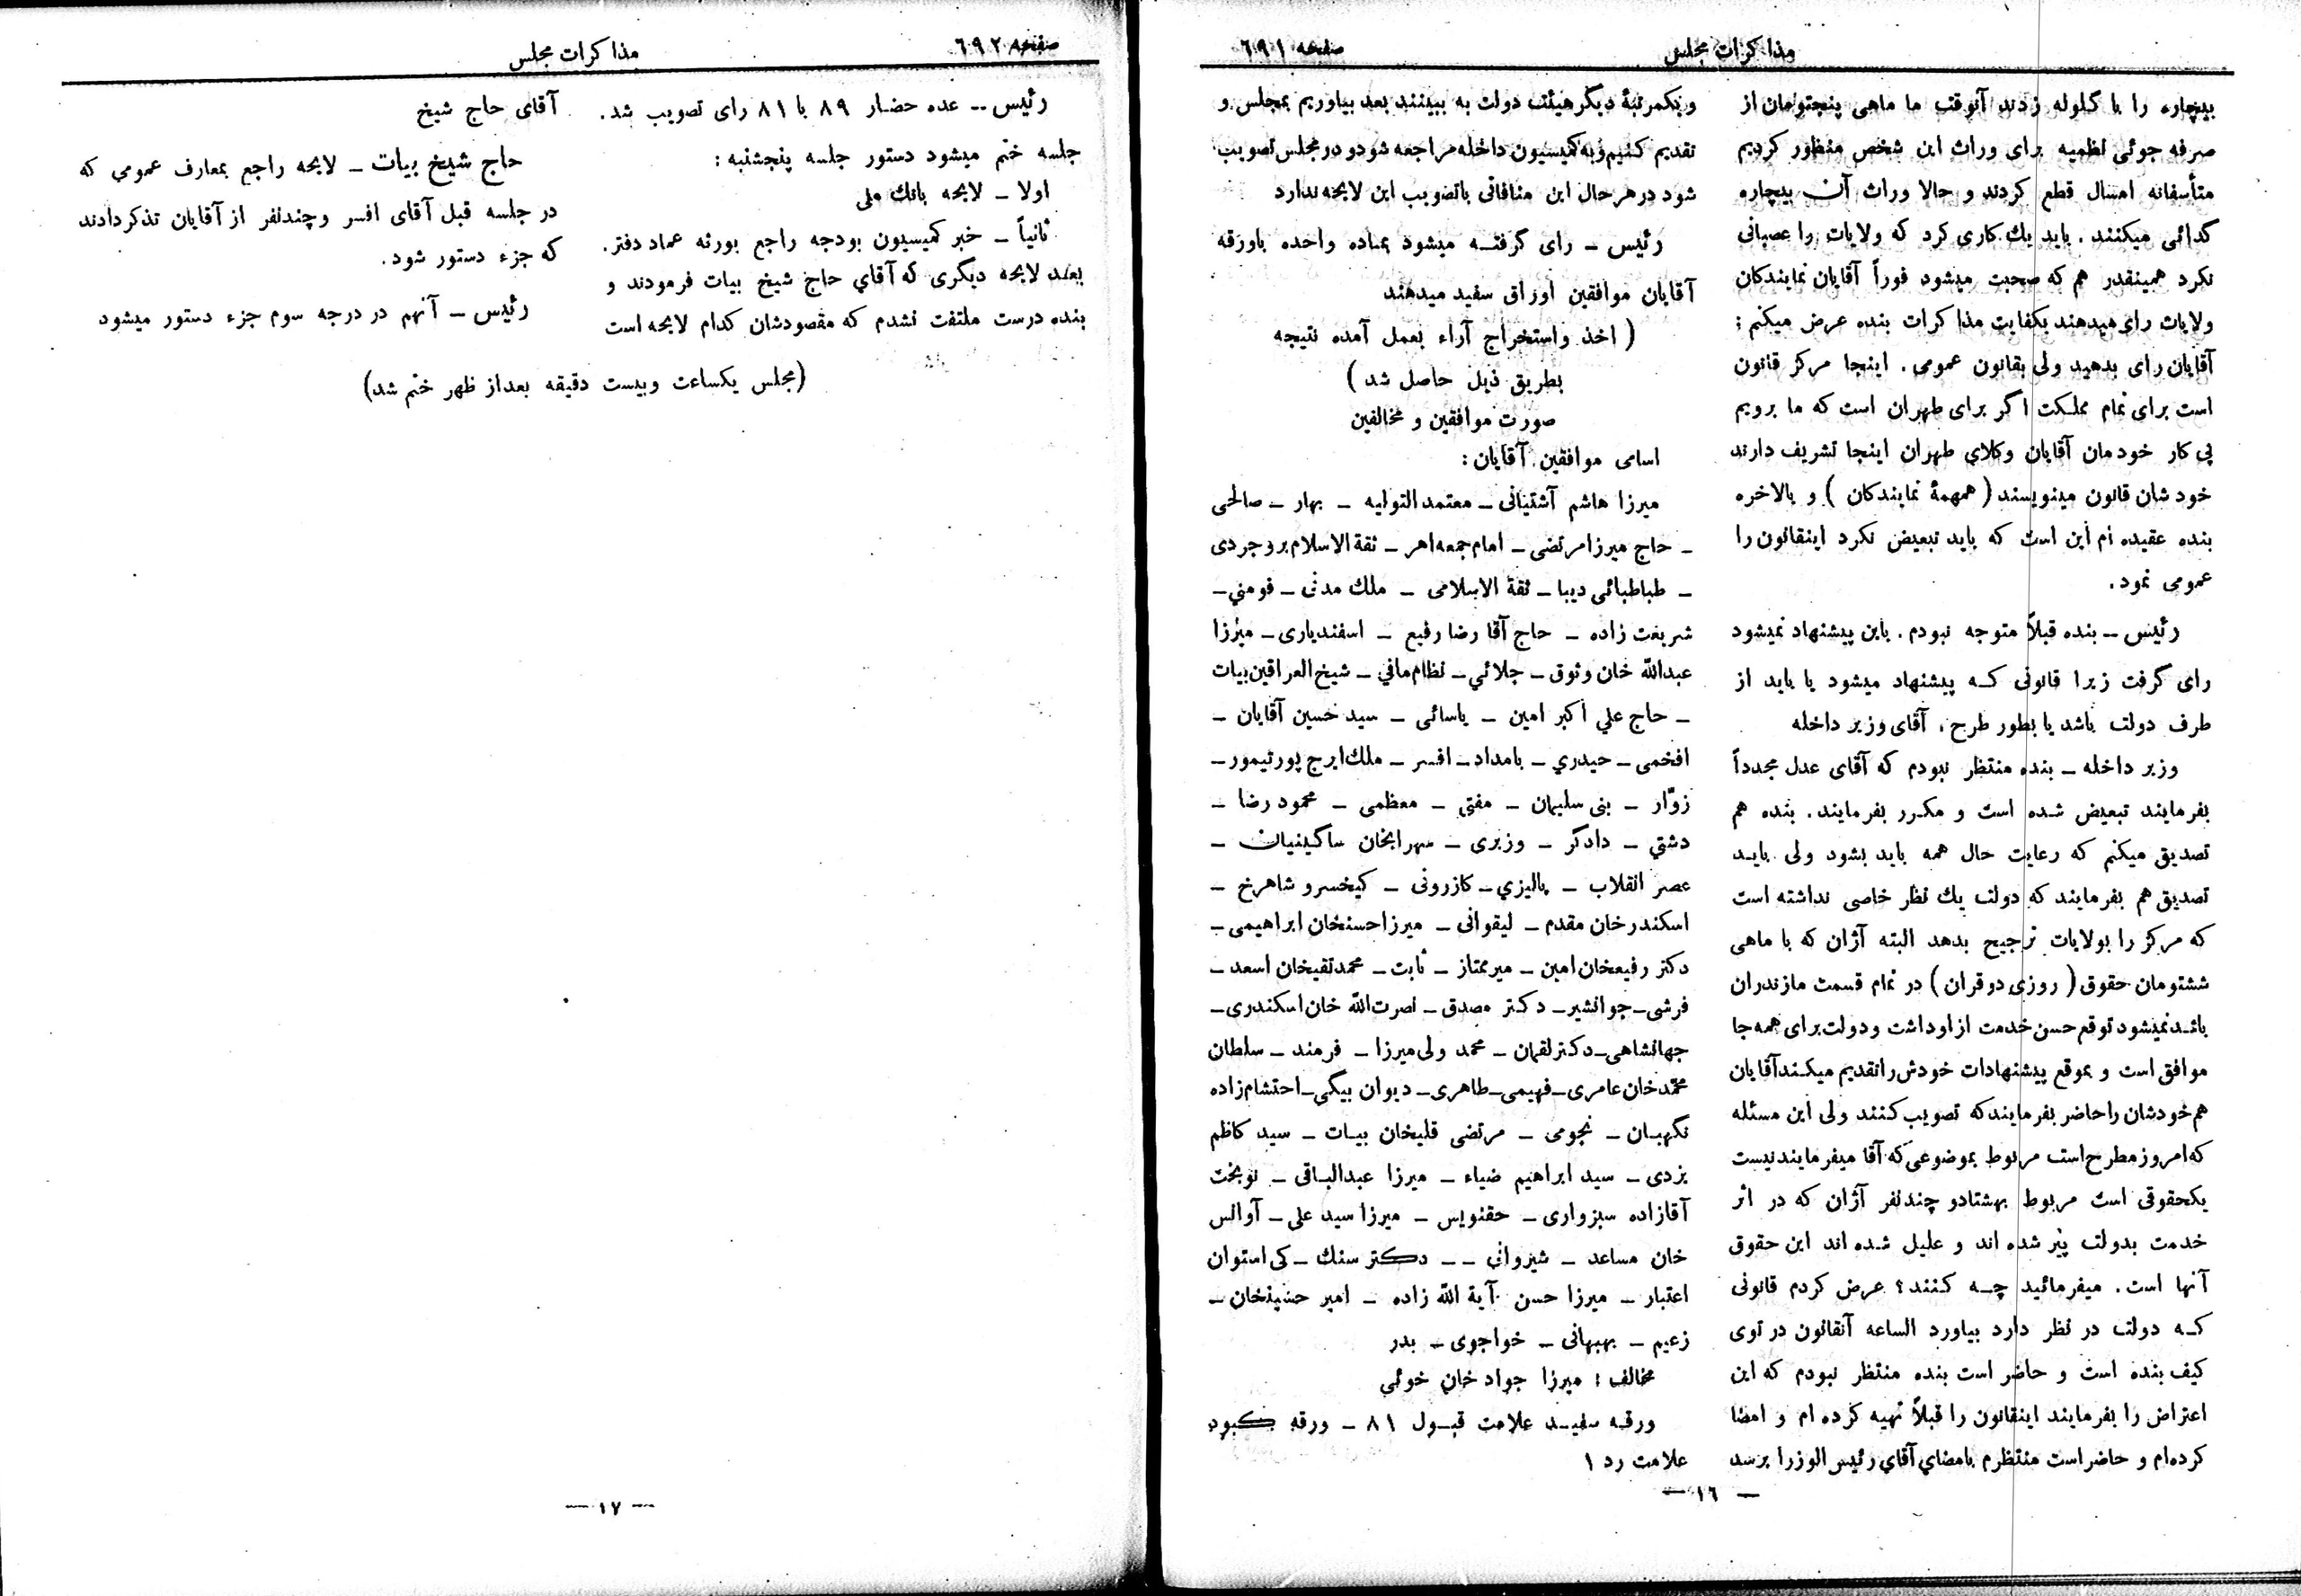 صفحه ٦٩١
مذاکرات مجلس
بیچاره را با گلوله زدند آنوقت ما ماهی پنجتومان از
صرفه جوئی نظمیه برای وراث این شخص منظور کردیم
متأسفانه امسال قطع کردند و حالا وراث آن بیچاره
گدائی میکنند . باید یك کاری کرد که ولایات را عصبانی
نکرد همینقدر هم که صحبت میشود فوراً آقایان نمایندکان
ولایات رای میدهند بکفایت مذاکرات بنده عرض میکنم :
آقایان رای بدهید ولی بقانون عمومی . اینجا مرکز قانون
است برای تمام مملکت اگر برای طهران است که ما برویم
پی کار خودمان آقایان وکلاي طهران اینجا تشریف دارند
خودشان قانون مینویسند ( همهمهٔ نمایندکان ) و بالاخره
بنده عقیده ام این است که باید تبعیض نکرد اینقانون را
عمومی نمود .
رئیس ـ بنده قبلاً متوجه نبودم . باین پیشنهاد نمیشود
رای گرفت زیرا قانونی که پیشنهاد میشود یا باید از
طرف دولت باشد یا بطور طرح . آقای وزیر داخله
وزیر داخله ـ بنده منتظر نبودم که آقای عدل مجدداً
بفرمایند تبعیض شده است و مکرر بفرمایند . بنده هم
تصدیق میکنم که رعایت حال همه باید بشود ولی باید
تصدیق هم بفرمایند که دولت یك نظر خاصی نداشته است
که مرکز را بولایات ترجیح بدهد البته آژان که با ماهی
ششتومان حقوق ( روزی دوقران ) در تمام قسمت مازندران
باشد نمیشود توقع حسن خدمت از او داشت و دولت برای همه جا
موافق است و بموقع پیشنهادات خودش را تقدیم میکند آقایان
هم خودشان را حاضر بفرمایند که تصویب کنند ولی این مسئله
که امروز مطرح است مربوط بموضوعی که آقا میفرمایند نیست
یکحقوقی است مربوط بهشتادو چندنفر آژان که در اثر
خدمت بدولت پیر شده اند و علیل شده اند این حقوق
آنها است . میفرمائید چه کنند ؟ عرض کردم قانونی
که دولت در نظر دارد بیاورد الساعه آنقانون در توی
کیف بنده است و حاضر است بنده منتظر نبودم که این
اعتراض را بفرمایند اینقانون را قبلاً تهیه کرده ام و امضا
کرده ام و حاضر است منتظرم بامضاي آقاي رئیس الوزرا برسد
ویکمرتبهٔ دیگر هیئت دولت به ببینند بعد بیاوریم بمجلس و
تقدیم کنیم و به کمیسیون داخله مراجعه شود و در مجلس تصویب
شود در هر حال این منافاتی با تصویب این لایحه ندارد
رئیس ـ رای گرفته میشود بماده واحده باورقه
آقایان موافقین اوراق سفید میدهند
( اخذ واستخراج آراء بعمل آمده نتیجه
بطریق ذیل حاصل شد )
صورت موافقین و مخالفین
اسامی موافقین آقایان :
میرزا هاشم آشتیانی ـ معتمدالتولیه ـ بهار ـ صالحی
ـ حاج میرزا مرتضی ـ امام جمعه اهر ـ ثقة الاسلام بروجردی
ـ طباطبائی دیبا ـ ثقة الاسلامی ـ ملك مدنی ـ فومني ـ
شریعت زاده ـ حاج آقا رضا رفیع ـ اسفندیاری ـ میرزا
عبدالله خان وثوق ـ جلائي ـ نظام مافي ـ شیخ العراقین بیات
ـ حاج علي اکبر امین ـ یاسائی ـ سید حسین آقایان ـ
افخمی ـ حیدري ـ بامداد ـ افسر ـ ملك ایرج پورتیمور ـ
زوّار ـ بنی سلیمان ـ مفتی ـ معظمی ـ محمود رضا ـ
دشتي ـ دادگر ـ وزیری ـ سهرابخان ساگینیان ـ
عصر انقلاب ـ پالیزي ـ کازرونی ـ کیخسرو شاهرخ ـ
اسکندر خان مقدم ـ لیقوانی ـ میرزا حسنخان ابراهیمی ـ
دکتر رفیعخان امین ـ میرممتاز ـ ثابت ـ محمد تقیخان اسعد ـ
فرشی ـ جوانشیر ـ دکتر مصدق ـ نصرت الله خان اسکندری ـ
جهانشاهی ـ دکتر لقمان ـ محمد ولی میرزا ـ فرمند ـ سلطان
محمّد خان عامری ـ فهیمی ـ طاهری ـ دیوان بیگی ـ احتشام زاده
نگهبان ـ نجومی ـ مرتضی قلیخان بیات ـ سید کاظم
یزدی ـ سید ابراهیم ضیاء ـ میرزا عبدالباقی ـ نوبخت
آقازاده سبزواری ـ حقنویس ـ میرزا سید علی ـ آوانس
خان مساعد ـ شیروانی ـ ـ دکتر سنك ـ کی استوان
اعتبار ـ میرزا حسن آیة الله زاده ـ امیر حسینخان ـ
زعیم ـ بهبهانی ـ خواجوی ـ بدر
مخالف : میرزا جواد خان خوئي
ورقه سفید علامت قبول ٨١ ـ ورقه کبود
علامت رد ١
— ١٦ —
صفحه ٦٩٢
مذاکرات مجلس
رئیس ـ عده حضار ٨٩ با ٨١ رای تصویب شد .
جلسه ختم میشود دستور جلسه پنجشنبه :
اولا ـ لایحه بانك ملی
ثانیاً ـ خبر کمیسیون بودجه راجع بورثه عماد دفتر .
بعد لایحه دیگری که آقاي حاج شیخ بیات فرمودند و
بنده درست ملتفت نشدم که مقصودشان کدام لایحه است
آقای حاج شیخ
حاج شیخ بیات ـ لایحه راجع بمعارف عمومي که
در جلسه قبل آقای افسر وچندنفر از آقایان تذکر دادند
که جزء دستور شود .
رئیس ـ آنهم در درجه سوم جزء دستور میشود
(مجلس یکساعت وبیست دقیقه بعداز ظهر ختم شد)
— ١٧ —